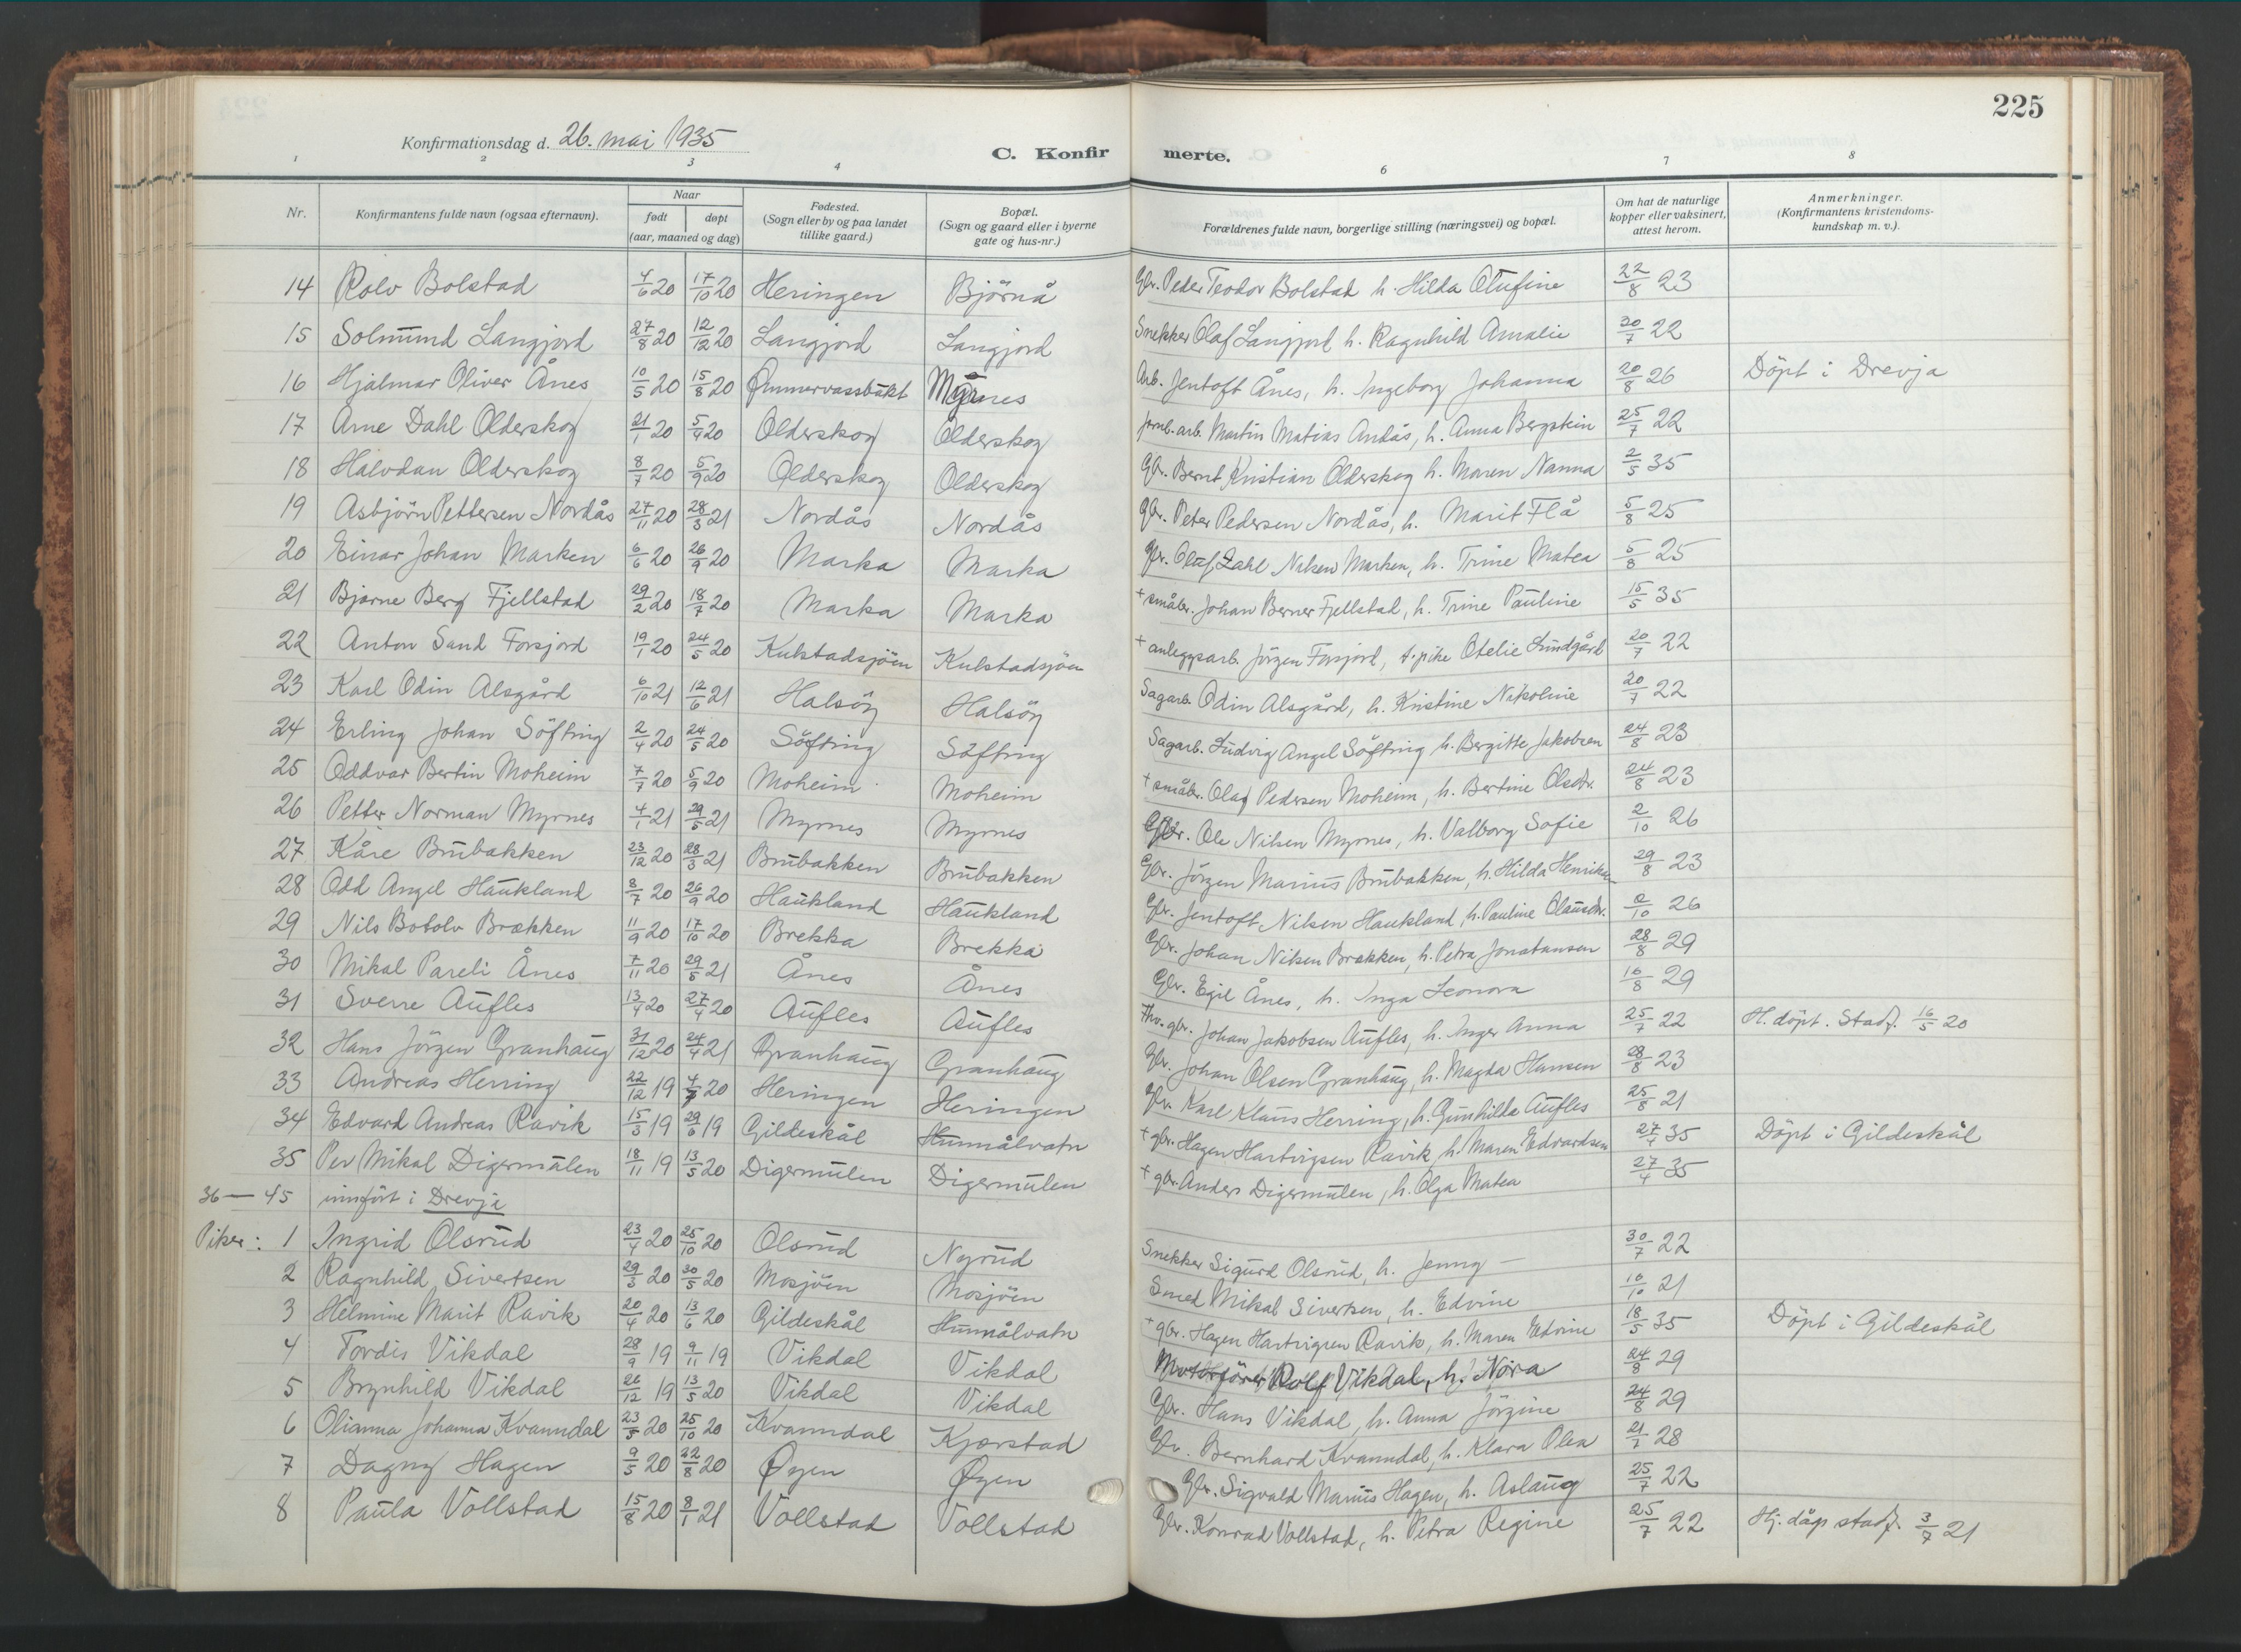 225
Konfirmationsdag d. 26. mai 1935
C. Konfirmerte.
1 2 3 4 6 7 8
Nr. Konfirmantens fulde navn (ogsaa efternavn). Naar født døpt (aar, maaned og dag) Fødested. (Sogn eller by og paa landet tillike gaard.) Bopæl. (Sogn og gaard eller i byerne gate og hus-nr.) Forældrenes fulde navn, borgerlige stilling (næringsvei) og bopæl. Om hat de naturlige kopper eller vaksinert, attest herom. Anmerkninger. (Konfirmantens kristendomskundskap m. v.).
14 Rolv Bolstad 4/6 20 17/10 20 Heringen Bjørnå Gbr. Peder Teodor Bolstad h. Hilda Olufine 22/8 23
15 Solmund Langjord 27/8 20 12/12 20 Langjord Langjord Snekker Olaf Langjord h. Ragnhild Amalie 20/7 22
16 Hjalmar Oliver Ånes 10/5 20 15/8 20 Ømmervassbukt Myrnes Arb. Jentoft Ånes, h. Ingeborg Johanna 20/8 26 Döpt i Drevja
17 Arne Dahl Olderskog 21/1 20 5/4 20 Olderskog Olderskog jernb.arb. Martin Matias Andås, h. Anna Bergstein 25/7 22
18 Halvdan Olderskog 8/7 20 5/9 20 Olderskog Olderskog Gbr. Bernt Kristian Olderskog h. Maren Nanna 2/5 35
19 Asbjörn Pettersen Nordås 27/11 20 28/3 21 Nordås Nordås Gbr. Peter Pedersen Nordås, h. Marit Flå 5/8 25
20 Einar Johan Marken 6/6 20 26/9 20 Marka Marka Gbr. Oluf Zahl Nilsen Marken, h. Trine Matea 5/8 25
21 Bjarne Berg Fjellstad 29/2 20 18/7 20 Marka Marka + småbr. Johan Berner Fjellstad, h. Trine Pauline 15/5 35
22 Anton Sand Forsjord 19/1 20 24/5 20 Kulstadsjöen Kulstadsjöen + anleggsarb. Jörgen Forsjord, t. pike Otelie Lundgård 20/7 22
23 Karl Odin Alsgård 6/10 21 12/6 21 Halsöy Halsöy Sagarb. Odin Alsgård, h. Kristine Nikoline 20/7 22
24 Erling Johan Söfting 2/4 20 24/5 20 Söfting Söfting Sagarb. Ludvig Angel Söfting h. Bergitte Jakobsen 24/8 23
25 Oddvar Bertin Moheim 7/7 20 5/9 20 Moheim Moheim + småbr. Olaf Pedersen Moheim, h. Bertine Olsdtr. 24/8 23
26 Petter Norman Myrnes 4/1 21 29/5 21 Myrnes Myrnes Gbr. Ole Nilsen Myrnes, h. Valborg Sofie 2/10 26
27 Kåre Brubakken 23/12 20 28/3 21 Brubakken Brubakken Gbr. Jörgen Marius Brubakken, h. Hilda Henrikn 29/8 23
28 Odd Angel Haukland 8/7 20 26/9 20 Haukland Haukland Gbr. Jentoft Nilsen Haukland, h. Pauline Clausdtr. 2/10 26
29 Nils Botolv Brækken 11/9 20 17/10 20 Brekka Brekka Gbr. Johan Nilsen Brækken, h. Petra Jonatansen 28/8 29
30 Mikal Pareli Ånes 7/11 20 29/5 21 Ånes Ånes Gbr. Egil Ånes, h. Inga Leonora 16/8 29
31 Sverre Aufles 13/4 20 27/4 20 Aufles Aufles Fhv. gbr. Johan Jakobsen Aufles, h. Inger Anna 25/7 22 H. döpt. Stadf. 16/5 20
32 Hans Jörgen Granhaug 31/12 20 24/4 21 Granhaug Granhaug Gbr. Johan Olsen Granhaug, h. Magda Hansen 28/8 23
33 Andreas Herring 22/12 19 20 Heringen Heringen Gbr. Karl Klaus Herring, h. Gunhilda Aufles 25/8 21
34 Edvard Andreas Ravik 15/3 19 29/6 19 Gildeskål Hunnålvatn + gbr. Hagen Hartvigsen Ravik, h. Maren Edvardsen 27/4 35 Döpt i Gildeskål
35 Per Mikal Digermulen 18/11 19 13/5 20 Digermulen Digermulen + gbr. Anders Digermulen, h. Olga Matea 27/4 35
36 — 45 innfört i Drevja
Piker: 1 Ingrid Olsrud 23/4 20 25/10 20 Olsrud Nyrud Snekker Sigurd Olsrud, h. Jenny — 30/7 22
2 Ragnhild Sivertsen 29/3 20 30/5 20 Mosjöen Mosjöen Smed Mikal Sivertsen, h. Edvine 16/10 21
3 Helmine Marit Ravik 20/4 20 13/6 20 Gildeskål Hunnålvatn + gbr. Hagen Hartvigsen Ravik, h. Maren Edvine 18/5 35 Döpt i Gildeskål
4 Tordis Vikdal 28/9 19 9/11 19 Vikdal Vikdal Motorförer Rolf Vikdal, h. Nora 24/8 29
5 Brynhild Vikdal 26/12 19 13/5 20 Vikdal Vikdal Gbr. Hans Vikdal, h. Anna Jörgine 24/8 29
6 Olianna Johanna Kvanndal 23/5 20 25/10 20 Kvanndal Kjærstad Gbr. Bernhard Kvanndal, h. Klara Olea 21/7 28
7 Dagny Hagen 9/5 20 22/8 20 Øyen Øyen Gbr. Sigvald Marius Hagen, h. Aslaug 25/7 22
8 Paula Vollstad 15/8 20 8/1 21 Vollstad Vollstad Gbr. Konrad Vollstad, h. Petra Regine 25/7 22 Hj. dåp stadf. 3/7 21